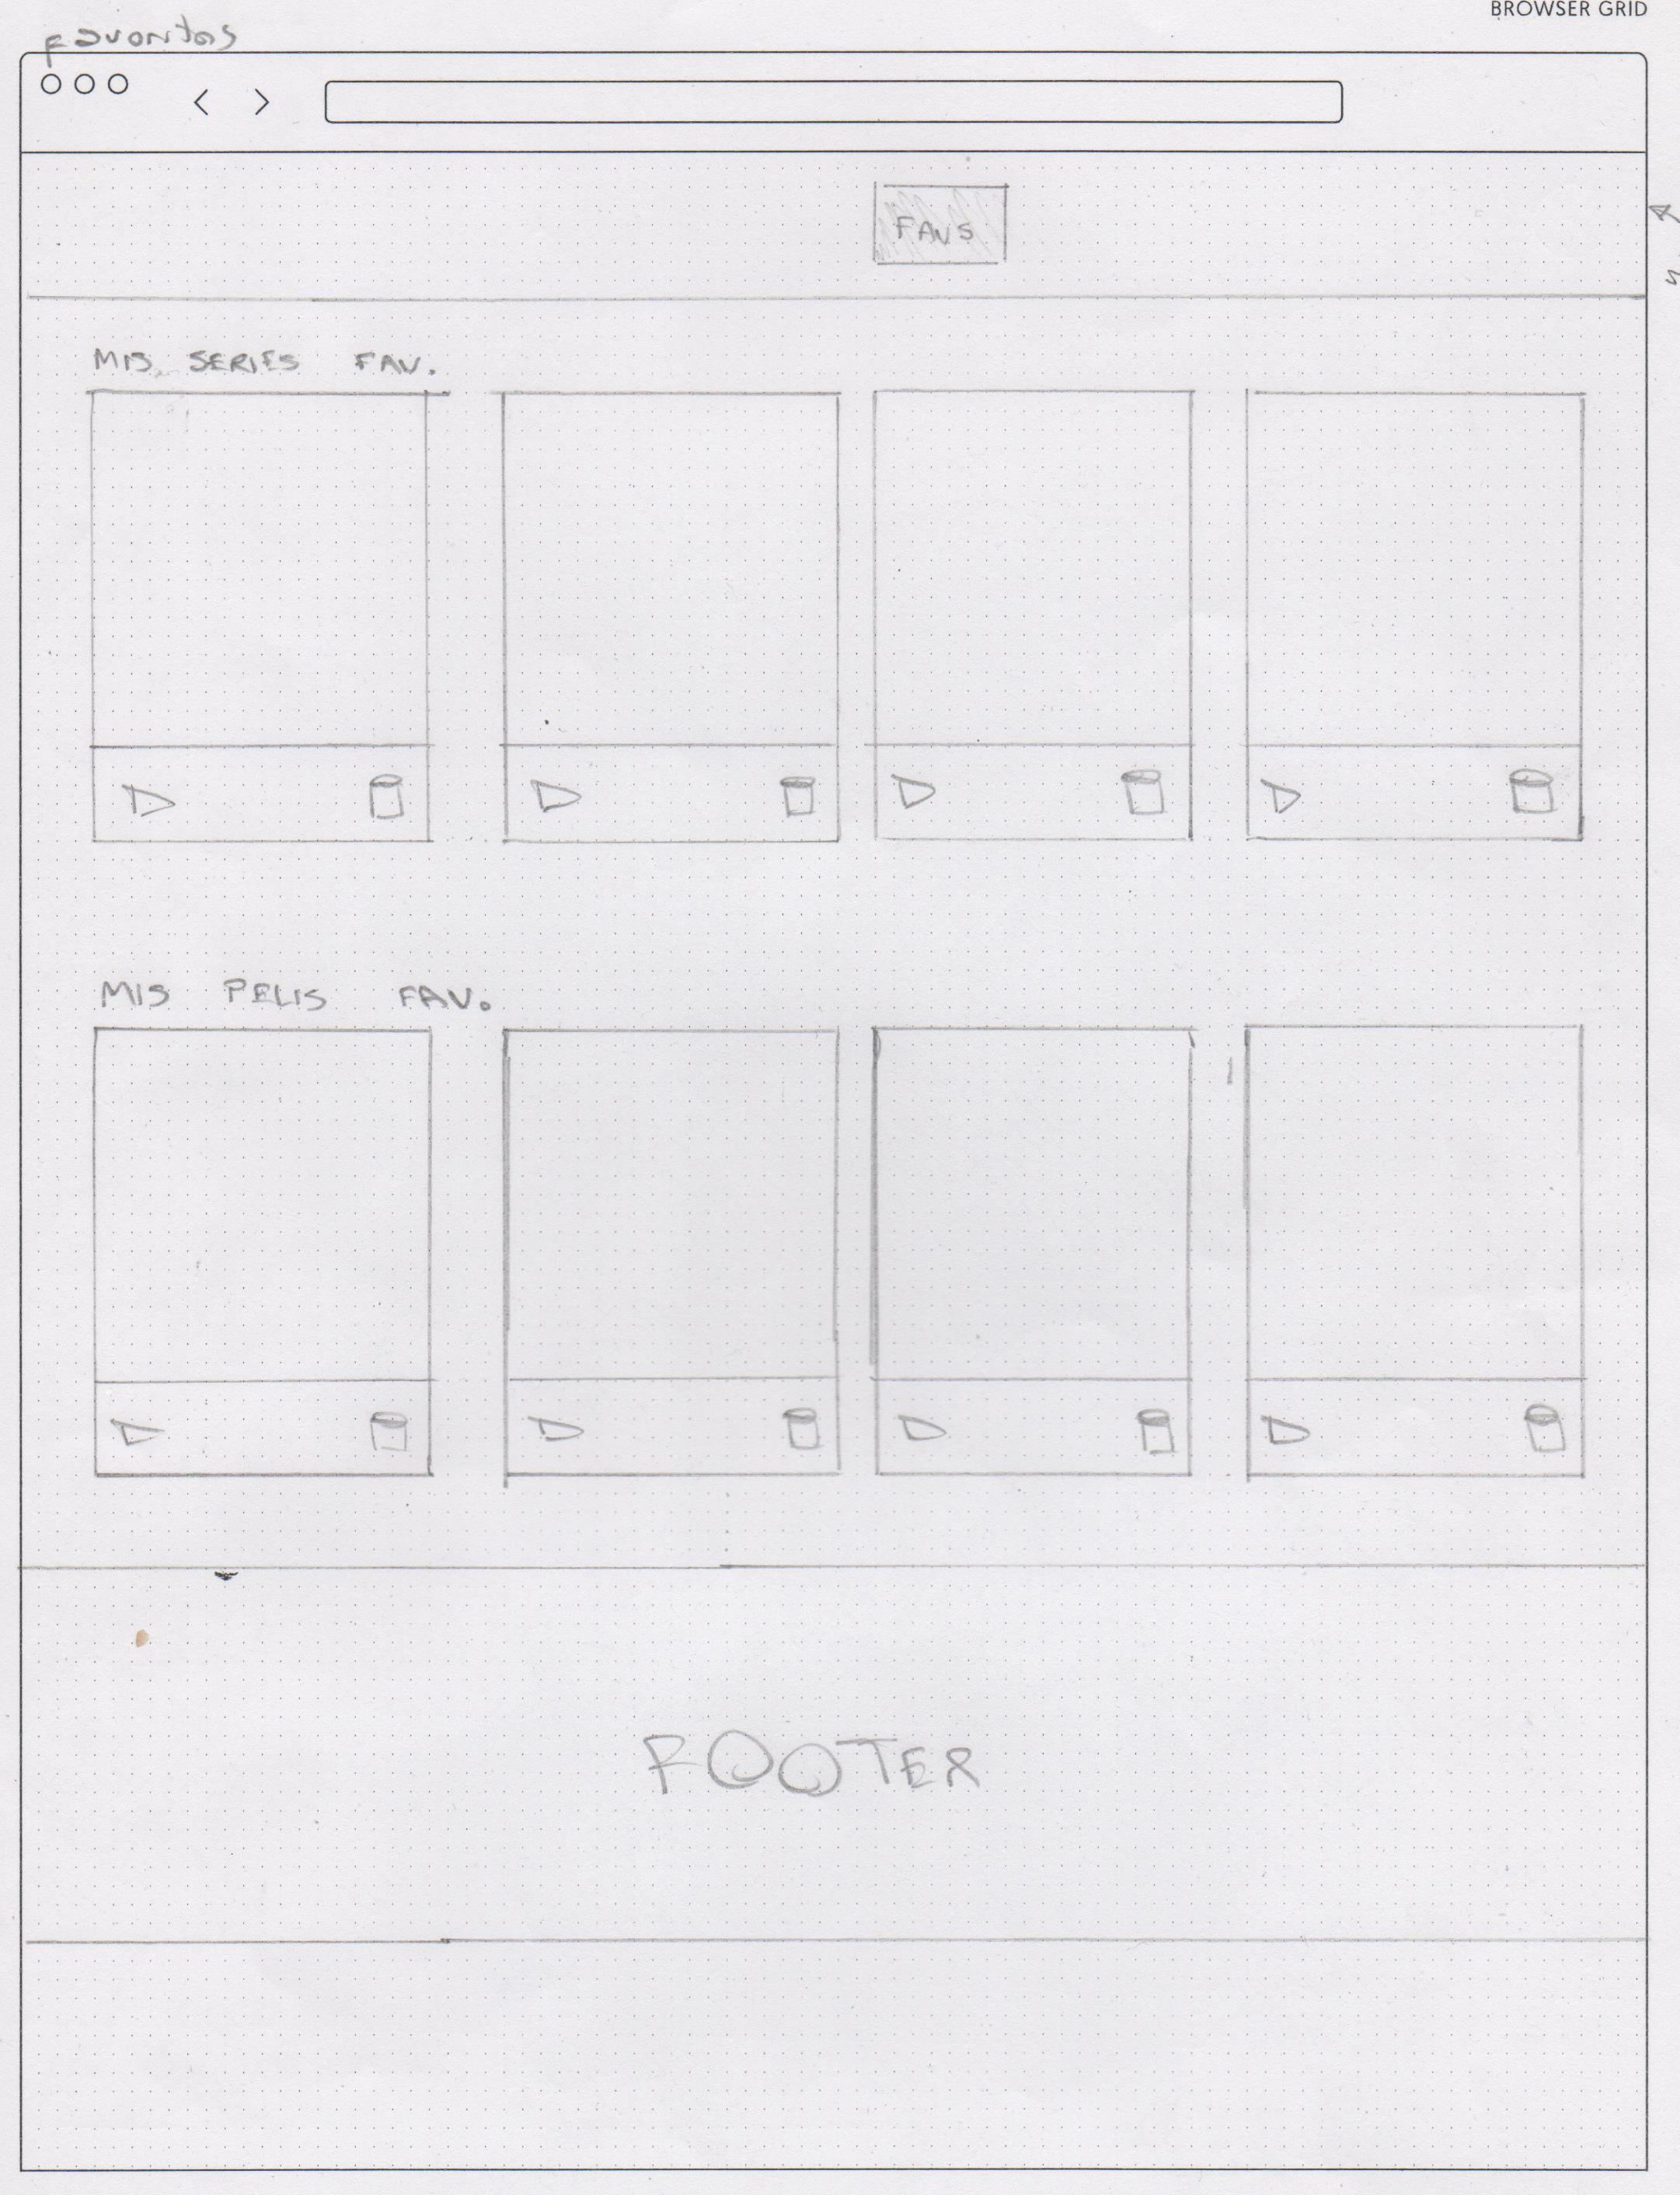 BROWSER GRID
Favoritos
FAVS
MIS SERIES FAV.
MIS PELIS FAV.
FOOTER